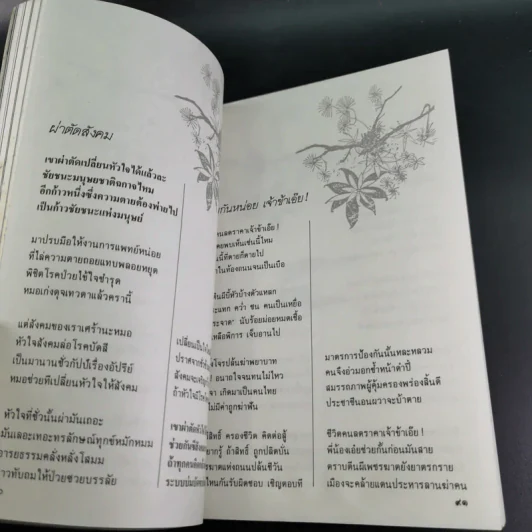 ผ่าตัดสังคม
เขาผ่าตัดเปลี่ยนหัวใจได้แล้วละ
ชัยชนะมนุษยชาติฉกาจไหม
อีกก้าวหนึ่งซึ่งความตายต้องพ่ายไป
เป็นก้าวชัยชนะแห่งมนุษย์
มาปรบมือให้งานการแพทย์หน่อย
ที่ไล่ความตายถอยแทบพลอยหยุด
พิชิตโรคป่วยใช้ใจชำรุด
หมอเก่งดุจเทวดาแล้วครานี้
แต่สังคมของเราเศร้านะหมอ
หัวใจสังคมล่อโรคบัดสี
เป็นมานานชั่วกัปป์เรื่องอัปรีย์
หมอช่วยทีเปลี่ยนหัวใจให้สังคม
หัวใจที่ชั่วนั้นผ่ามันเถอะ
มันเลอะเทอะทรลักษณ์ทุกข์หมักหมม
ารยธรรมคลั่งหลั่งโสมม
าวทับถมให้ป่วยช่วยบรรลัย
เปลี่ยนเป็น
ปราศจาก
สังคมจะ
ถ้าหัวใจ
เขาผ่าตัด
ช่วยกัน
ถ้าทุกอ
ระบบ
กันหน่อย เจ้าข้าเอ๊ย!
คนลดราคาเจ้าข้าเอ๊ย!
คยพบเห็นเช่นนี้ไหม
นี้ที่ตายก็ตายไป
าในท้องถนนจนเป็นเบือ
ห็นมีขี้หัวบ้างตัวแหลก
ะแทก คว่ำ ชน คนเป็นเหยื่อ
ระจาด" นับร้อยบ่อยหมดเชื้อ
เหลือเพื่อ เจ็บอานไป
งโจรปล้นฆ่าพยาบาท
! อนาถใจจนทนไม่ไหว
า เกิดมาเป็นคนไทย
ม่ค่าถูกฆ่าฟัน
สิทธิ์ ครองชีวิต คิดต่อสู้
ยากรู้ ถ้าสิทธิ์ ถูกปลิดบั่น
ฆาตแต่งถนนปล้นชีวัน
ไหนกันรับผิดชอบ เชิญตอบที
มาตรการป้องกันนั้นหละหลวม
คนจึงอ่วมอกช้ำหน้าดำปี๋
สมรรถภาพผู้คุ้มครองพร่องสิ้นดี
ประชาชีนอนผวาจะบ้าตาย
ชีวิตคนลดราคาเจ้าข้าเอ๊ย!
พี่น้องเอ๋ยช่วยกันก่อนมันสาย
ตราบตีนผีเพชฌฆาตยังยาตรกราย
เมืองจะคล้ายแดนประหารลานฆ่าคน
๙๑